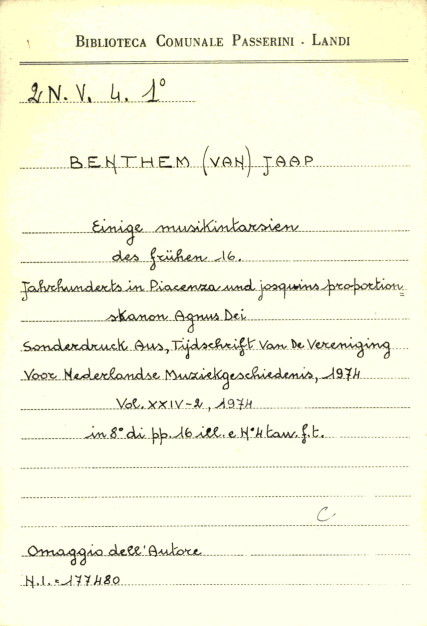 BIBLIOTECA COMUNALE PASSERINI - LANDI
2 N. V. 4. 1°
BENTHEM (VAN) JAAP
Einige musikintarsien
des frühen 16.
Jahrhunderts in Piacenza und josquins proportion=
skanon Agnus Dei
Sonderdruck Aus, Tijdschrift Van De Vereniging
Voor Nederlandse Muziekgeschiedenis, 1974
Vol. XXIV-2, 1974
in 8° di pp. 16 ill. e N° 4 tav. f.t.
C
Omaggio dell'Autore
N.I. = 177480